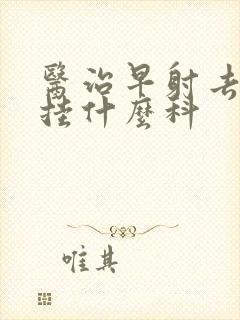 醫治早射去
挂什麼科
唯其